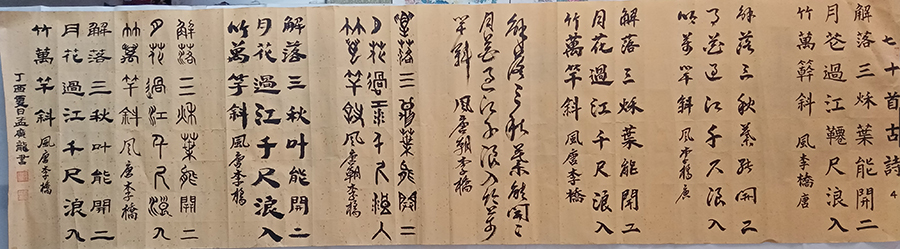 七十首古詩4
解落三秌葉能開二
月苍過江鞭尺浪入
竹萬簳斜 風李橋唐
解落三秋葉能開二
月花過江千尺浪入
竹萬竿斜 風李橋唐
解落三秌葉能開二
月花過江千尺浪入
竹萬竿斜 風唐李橋
解落三秋葉能開二
月花過江千尺浪入竹萬
竿斜 風唐朝李橋
解落三秋葉能開二
月花過江千尺浪入
竹萬竿斜 風唐朝李橋
解落三秋叶能開二
月花過江千尺浪入
竹萬竿斜 風唐李橋
解落三秌葉能開二
月花過江千尺浪入
竹萬竿斜 風唐李橋
解落三秋叶能開二
月花過江千尺浪入
竹萬竿斜 風唐李橋
丁酉夏日孟廣龍書